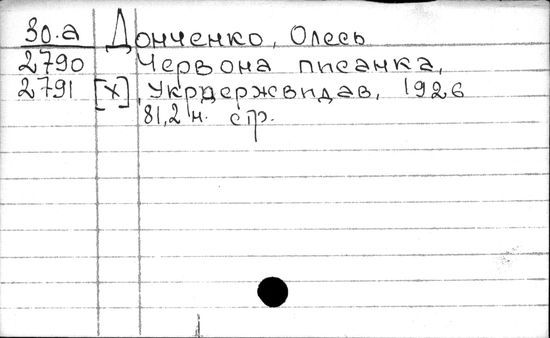 30.а Донченко, Олесь
2790 Червона писанка,
2791 [X] Укрдержвидав, 1926
81,2 н. стр.